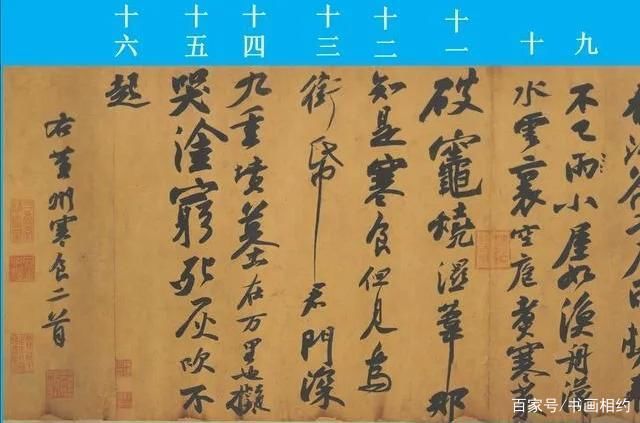 九
十
十一
十二
十三
十四
十五
十六
不已雨小屋如漁舟濛
水雲裏空庖煮寒菜
破竈燒濕葦那
知是寒食但見烏
銜帋君門深
九重墳墓在万里也擬
哭塗窮死灰吹不
起
右黄州寒食二首
百家号/书画相约